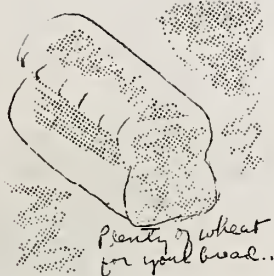 Plenty of wheat
for your bread..